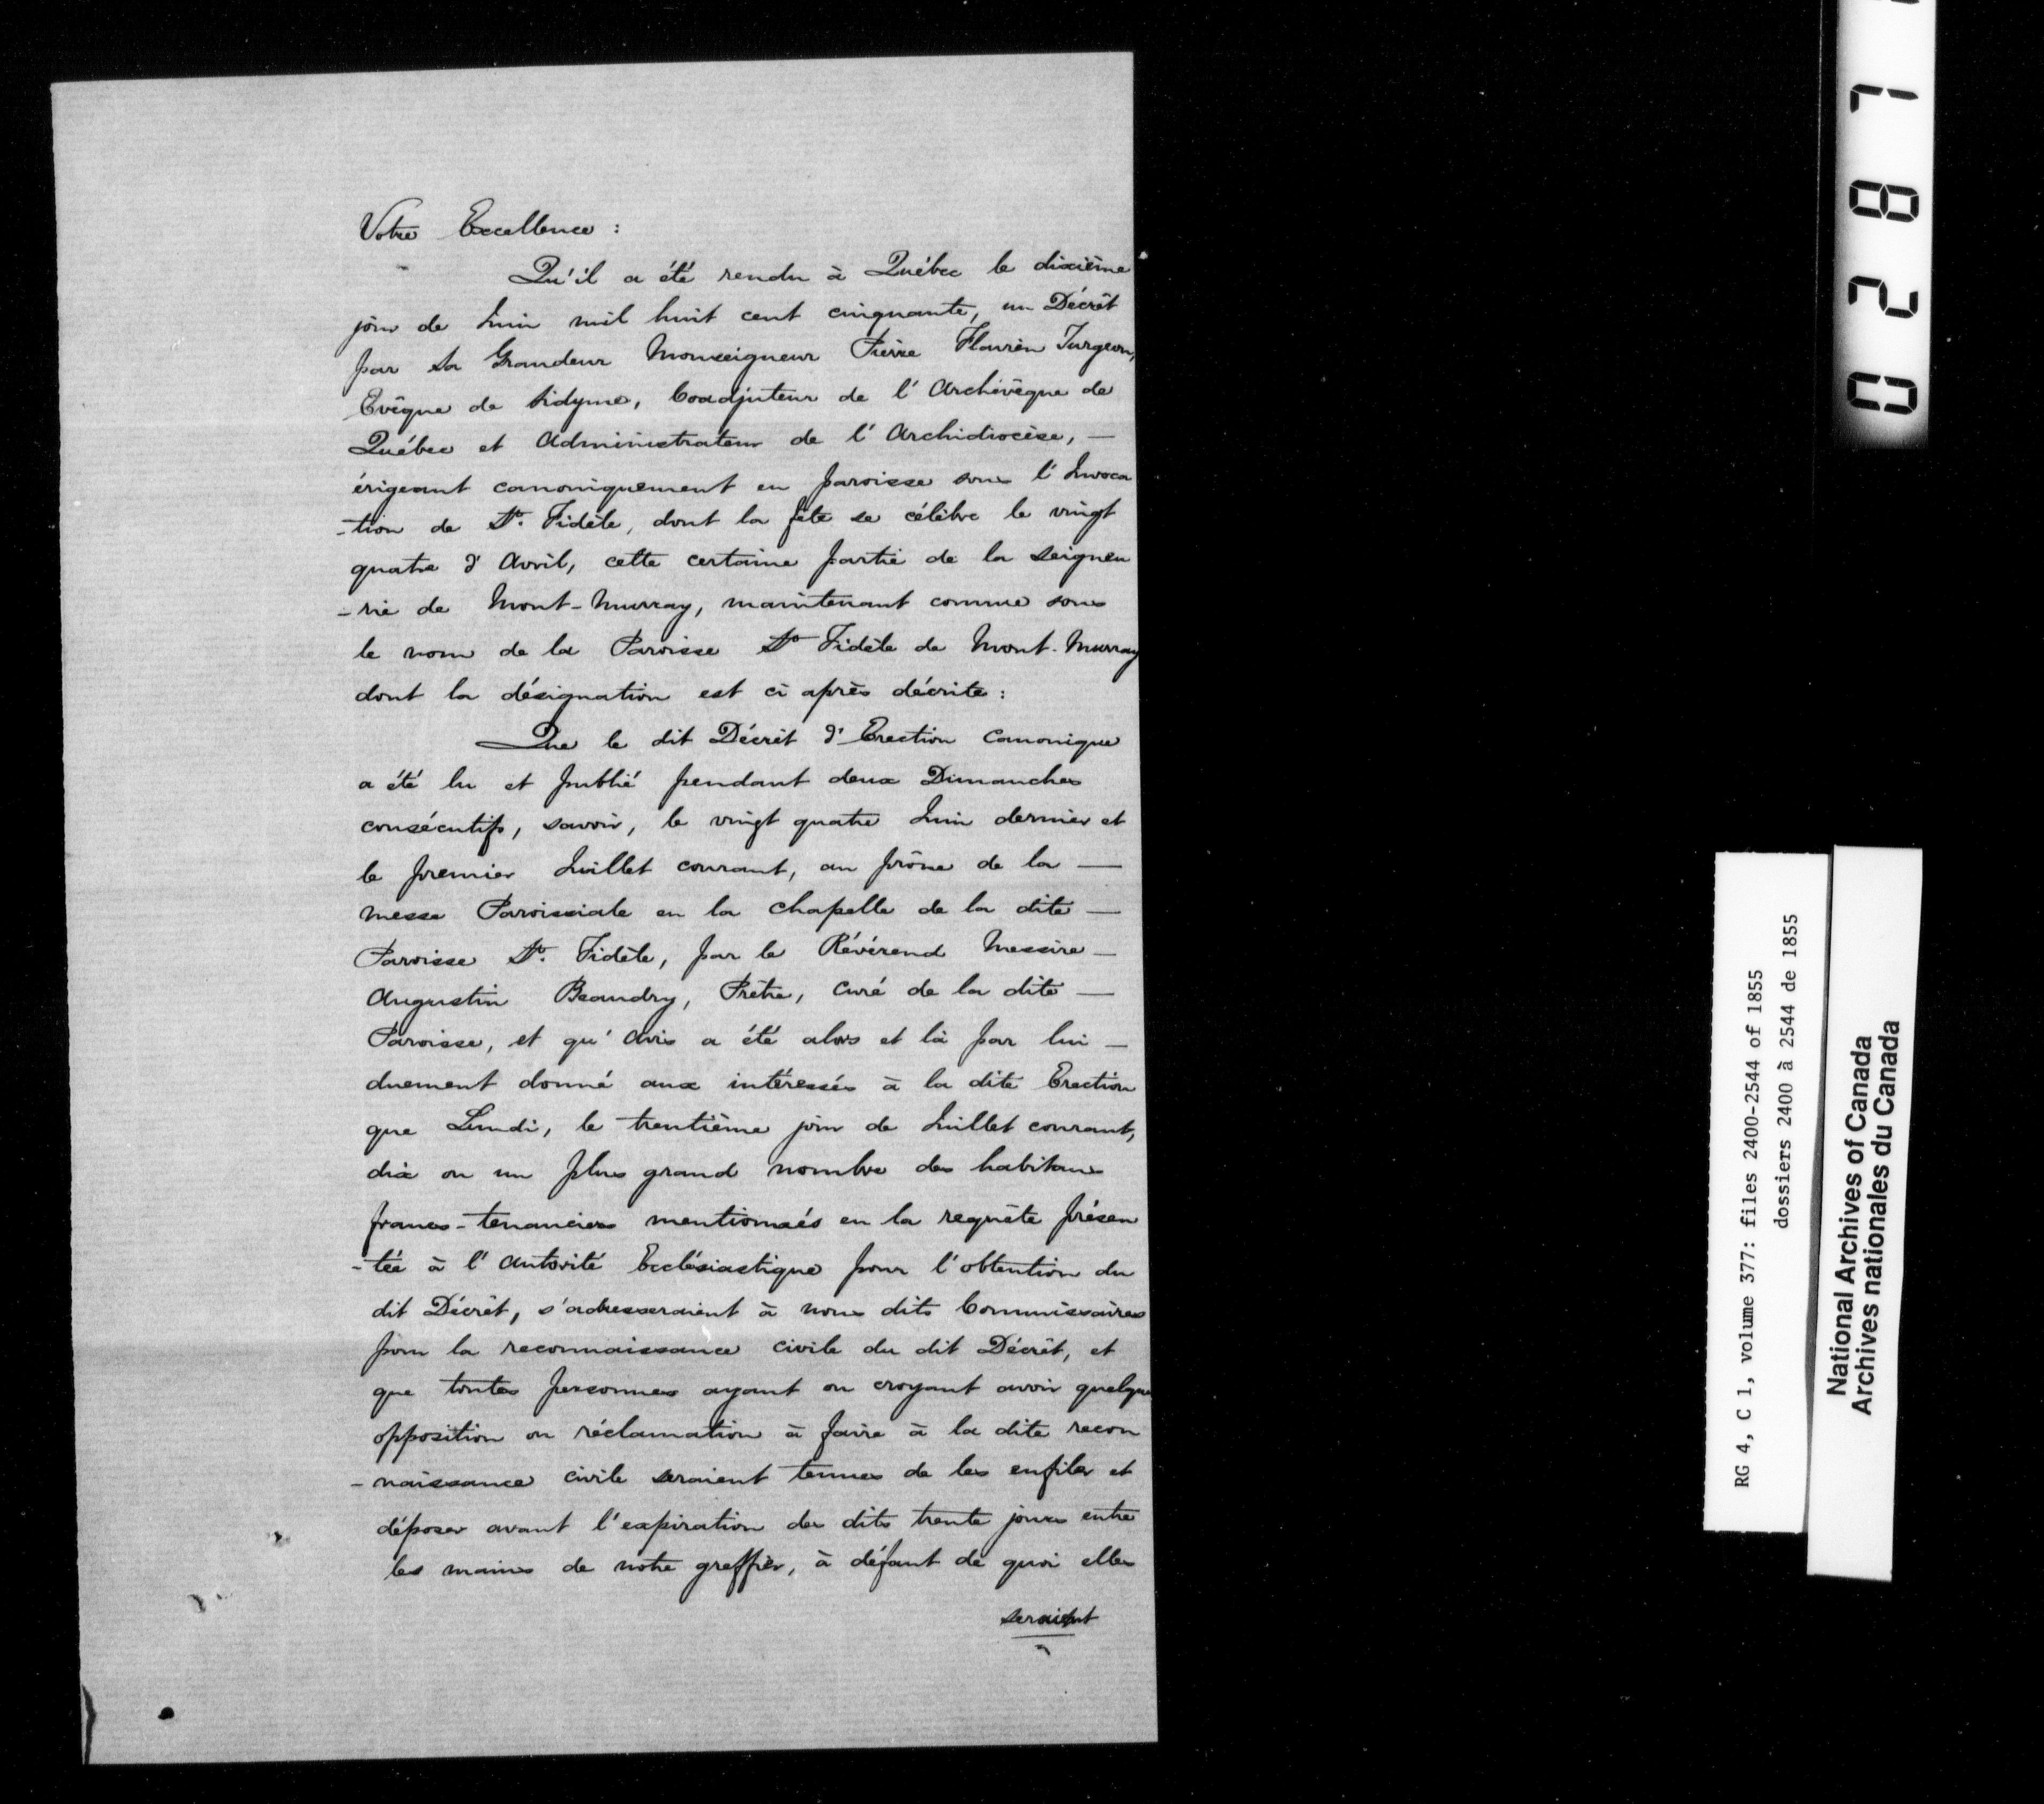 Votre Excellence :
Qu'il a été rendu à Québec le dixième
jour de Juin mil huit cent cinquante, un Décrêt
par Sa Grandeur Monseigneur Pierre Flavien Turgeon,
Evêque de Sidyme, Coadjuteur de l'Archevêque de
Québec et Administrateur de l'Archidiocèse, —
érigeant canoniquement en paroisse sous l'Invoca
-tion de St. Fidèle, dont la fête se célèbre le vingt
quatre d'Avril, cette certaine partie de la Seigneu
-rie de Mont-Murray, maintenant connue sous
le nom de la Paroisse St Fidèle de Mont-Murray
dont la désignation est ci après décrite :
Que le dit Décrêt d'Erection Canonique
a été lu et publié pendant deux Dimanches
consécutifs, savoir, le vingt quatre Juin dernier et
le premier Juillet courant, au prône de la —
messe Paroissiale en la chapelle de la dite —
Paroisse St. Fidèle, par le Révérend Messire —
Augustin Beaudry, Prêtre, Curé de la dite —
Paroisse, et qu'Avis a été alors et là par lui —
duement donné aux intéressés à la dite Erection
que Lundi, le trentième jour de Juillet courant,
dix ou un plus grand nombre des habitans
francs-tenanciers mentionnés en la requête présen
-tée à l'Autorité Ecclésiastique pour l'obtention du
dit Décrêt, s'adresseraient à nous dits Commissaires
pour la reconnaissance civile du dit Décrêt, et
que toutes personnes ayant ou croyant avoir quelque
opposition ou réclamation à faire à la dite recon
-naissance civile seraient tenues de les enfiler et
déposer avant l'expiration des dits trente jours entre
les mains de notre greffier, à défaut de quoi elles
seraient
0287
RG 4, C 1, volume 377: files 2400-2544 of 1855
dossiers 2400 à 2544 de 1855
National Archives of Canada
Archives nationales du Canada